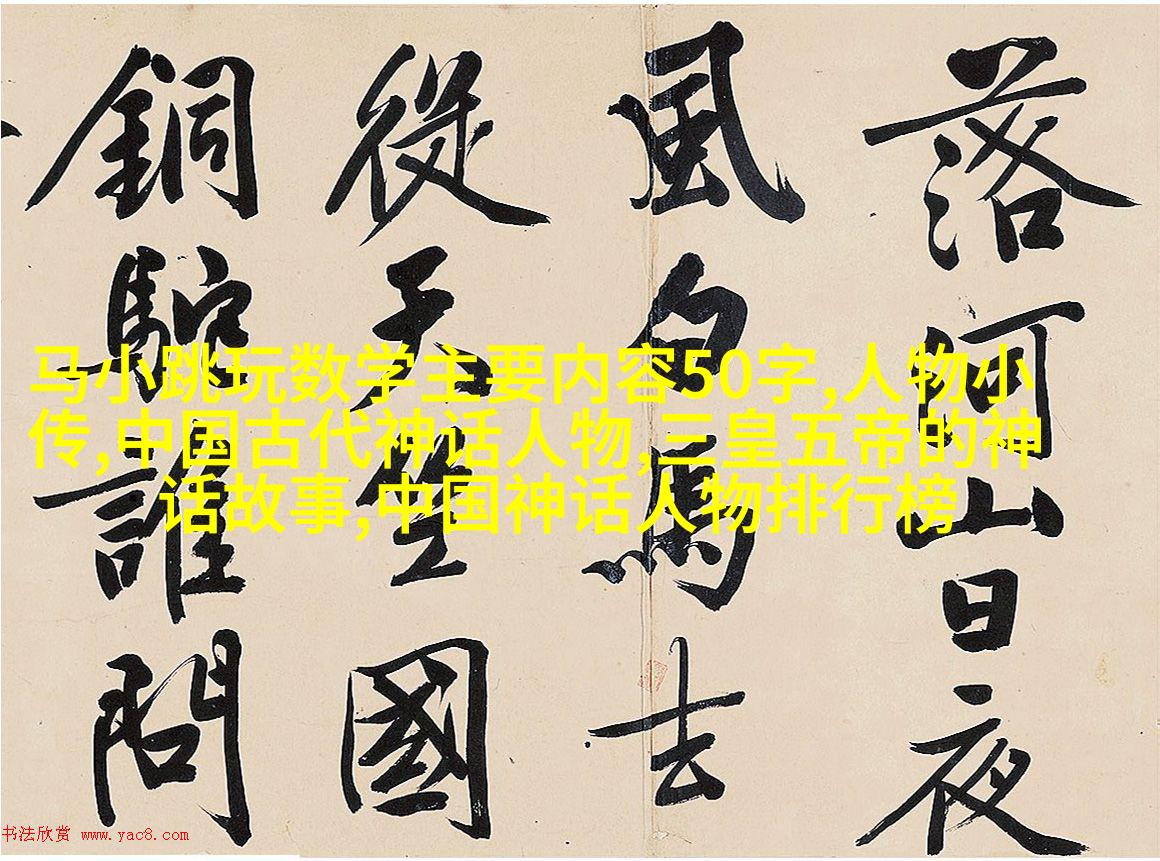 落河山日夜
風白馬去
從天竺國
銅駝誰問
马小跳玩数学主要内容50字,人物小
传,中国古代神话人物,三皇五帝的神
话故事,中国神话人物排行榜
书法欣赏 www.yac8.com